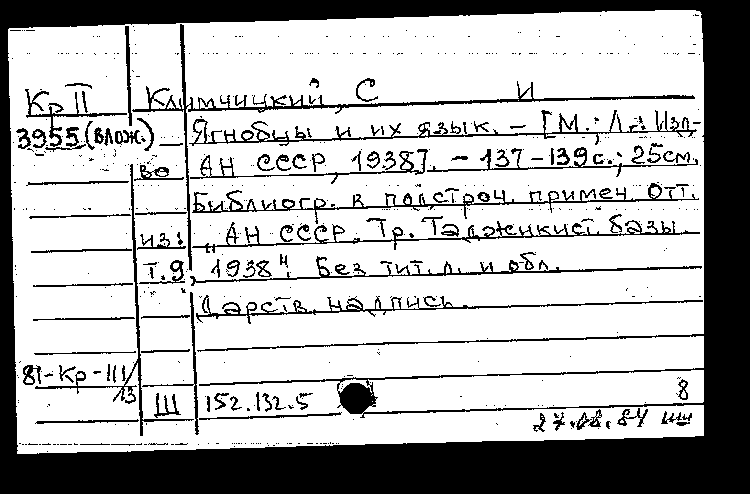 Кр II Климчицкий, С И
3955 (влож.) Ягнобцы и их язык. – [М.; Л.: Изд-
во АН СССР, 1938]. – 137–139 с.; 25 см.
Библиогр. в подстроч. примеч. Отт.
из: „АН СССР. Тр. Таджикист. базы.
т. 9, 1938“. Без тит. л. и обл.
Дарств. надпись.
81-Кр-III/13
Ш 152.132.5 8